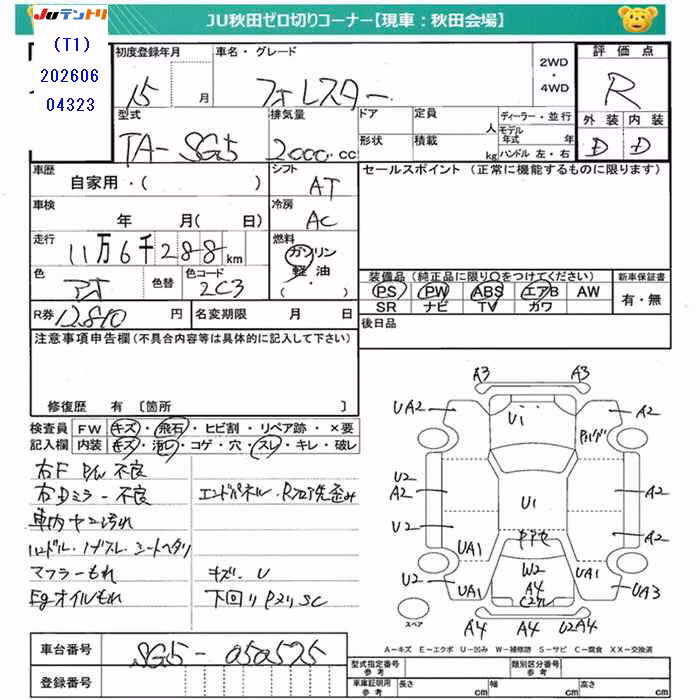 Juテントリ
JU秋田ゼロ切りコーナー【現車：秋田会場】
(T1)
202606
04323
初度登録年月
15 月
車名・グレード
フォレスター
2WD
・
4WD
評価点
R
外装 内装
D D
型式
TA-SG5
排気量
2000.cc
ドア
形状
定員 人
積載 kg
ディーラー・並行
モデル年式 年
ハンドル 左・右
車歴
自家用・( )
シフト
AT
セールスポイント (正常に機能するものに限ります)
車検
年 月( 日)
冷房
AC
走行
11万6千288km
燃料
ガソリン
軽油
( ・ )
色
色替
色コード
2C3
装備品 (純正品に限り〇をつけてください)
新車保証書
PS PW ABS エアB AW
SR ナビ TV カワ
有・無
R券 12810 円
名変期限 月 日
後日品
注意事項申告欄 (不具合内容等は具体的に記入して下さい)
修復歴 有 [箇所 ]
検査員記入欄
FW キズ・飛石・ヒビ割・リペア跡・×要
内装 キズ・汚れ・コゲ・穴・スレ・キレ・破レ
右F P/W 不良
右Dミラー不良
車内ヤニ汚れ
ハンドル・ノブスレ・シートヘタリ
マフラーもれ
Egオイルもれ
エンドパネル・Rフロア先歪み
キズ・U
下回りP21 SC
A3 A3
UA2 U1 A2
U2
A2 U1 A2
U2 A2
UA1 W2 UA1
U2 UA1 A4 UA1 UA3
スペア
A4 A4 U2A4
A－キズ E－エクボ U－凹み W－補修跡 S－サビ C－腐食 XX－交換済
車台番号 SG5-050575
登録番号
型式指定番号 参考
類別区分番号 参考
車庫証明用 参考
長さ cm
幅 cm
高さ cm